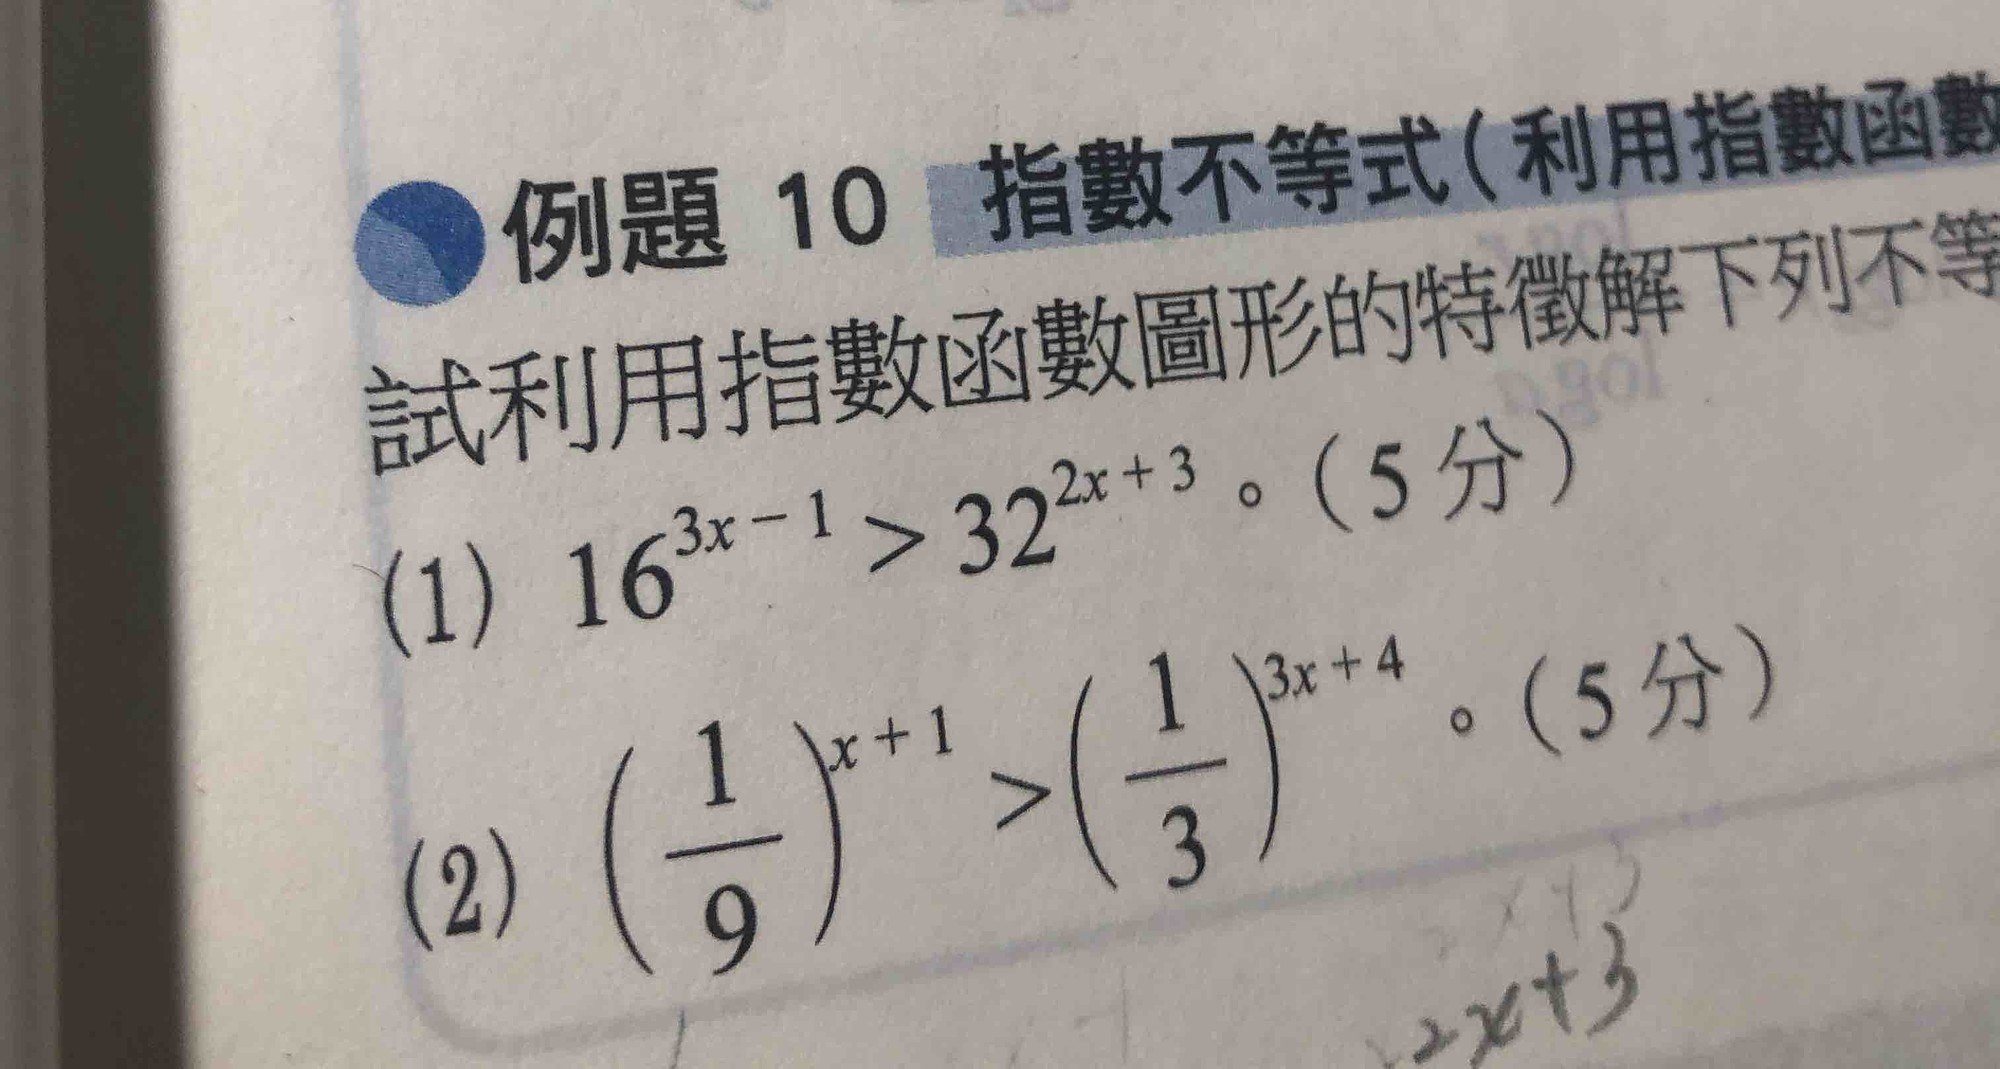 例題 10 指數不等式(利用指數函數
試利用指數函數圖形的特徵解下列不等
(1) 16^{3x-1} > 32^{2x+3}。(5分)
(2) (1/9)^{x+1} > (1/3)^{3x+4}。(5分)
2x+3